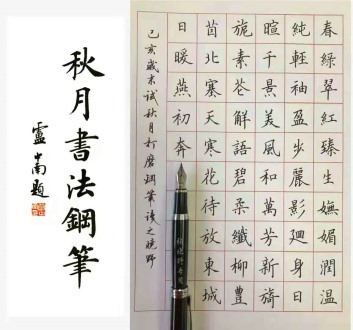 秋月書法鋼筆
盧中南題
春綠翠紅臻生嫵媚潤温
純輕袖盈步麗影迴身日
暄千景美風和萬芳新旖
旎素解語碧柔纖柳豐
茵北塞天寒花待放東城
日暖燕初奔
己亥歲末試秋月打磨鋼筆之曉野